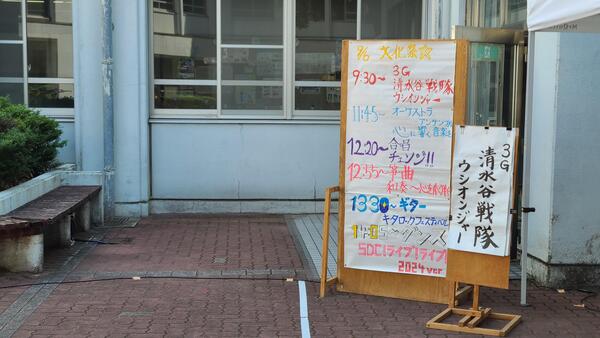 9/6 文化祭
9:30〜 3G
清水谷戦隊
ウシインジャー
11:45〜 オーケストラ
アンサンブル
心に響く音楽を
12:20〜 合唱
チェンジ!!
12:55〜 箏曲
和奏〜心を
1330〜ギター
ギタロックフェスティバル
14:05〜ダンス
SDC!ライブ!ライブ!
2024ver
3G
清水谷戦隊
ウシオンジャー